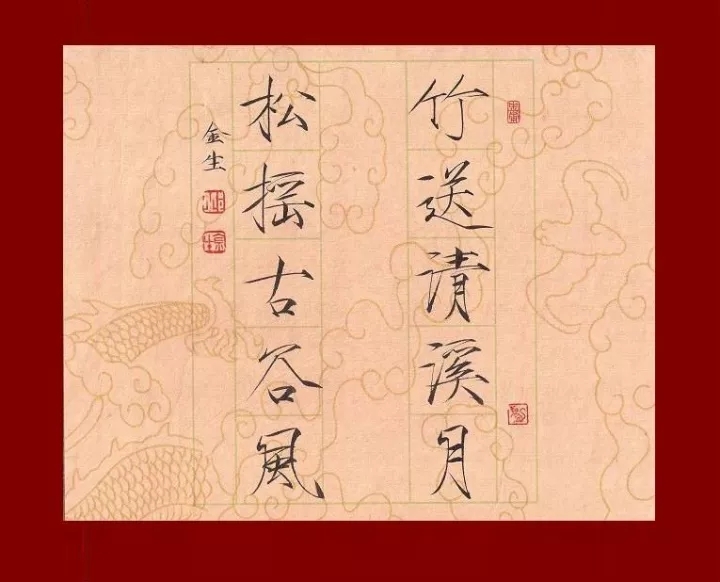 竹送清溪月
松摇古谷风
金生